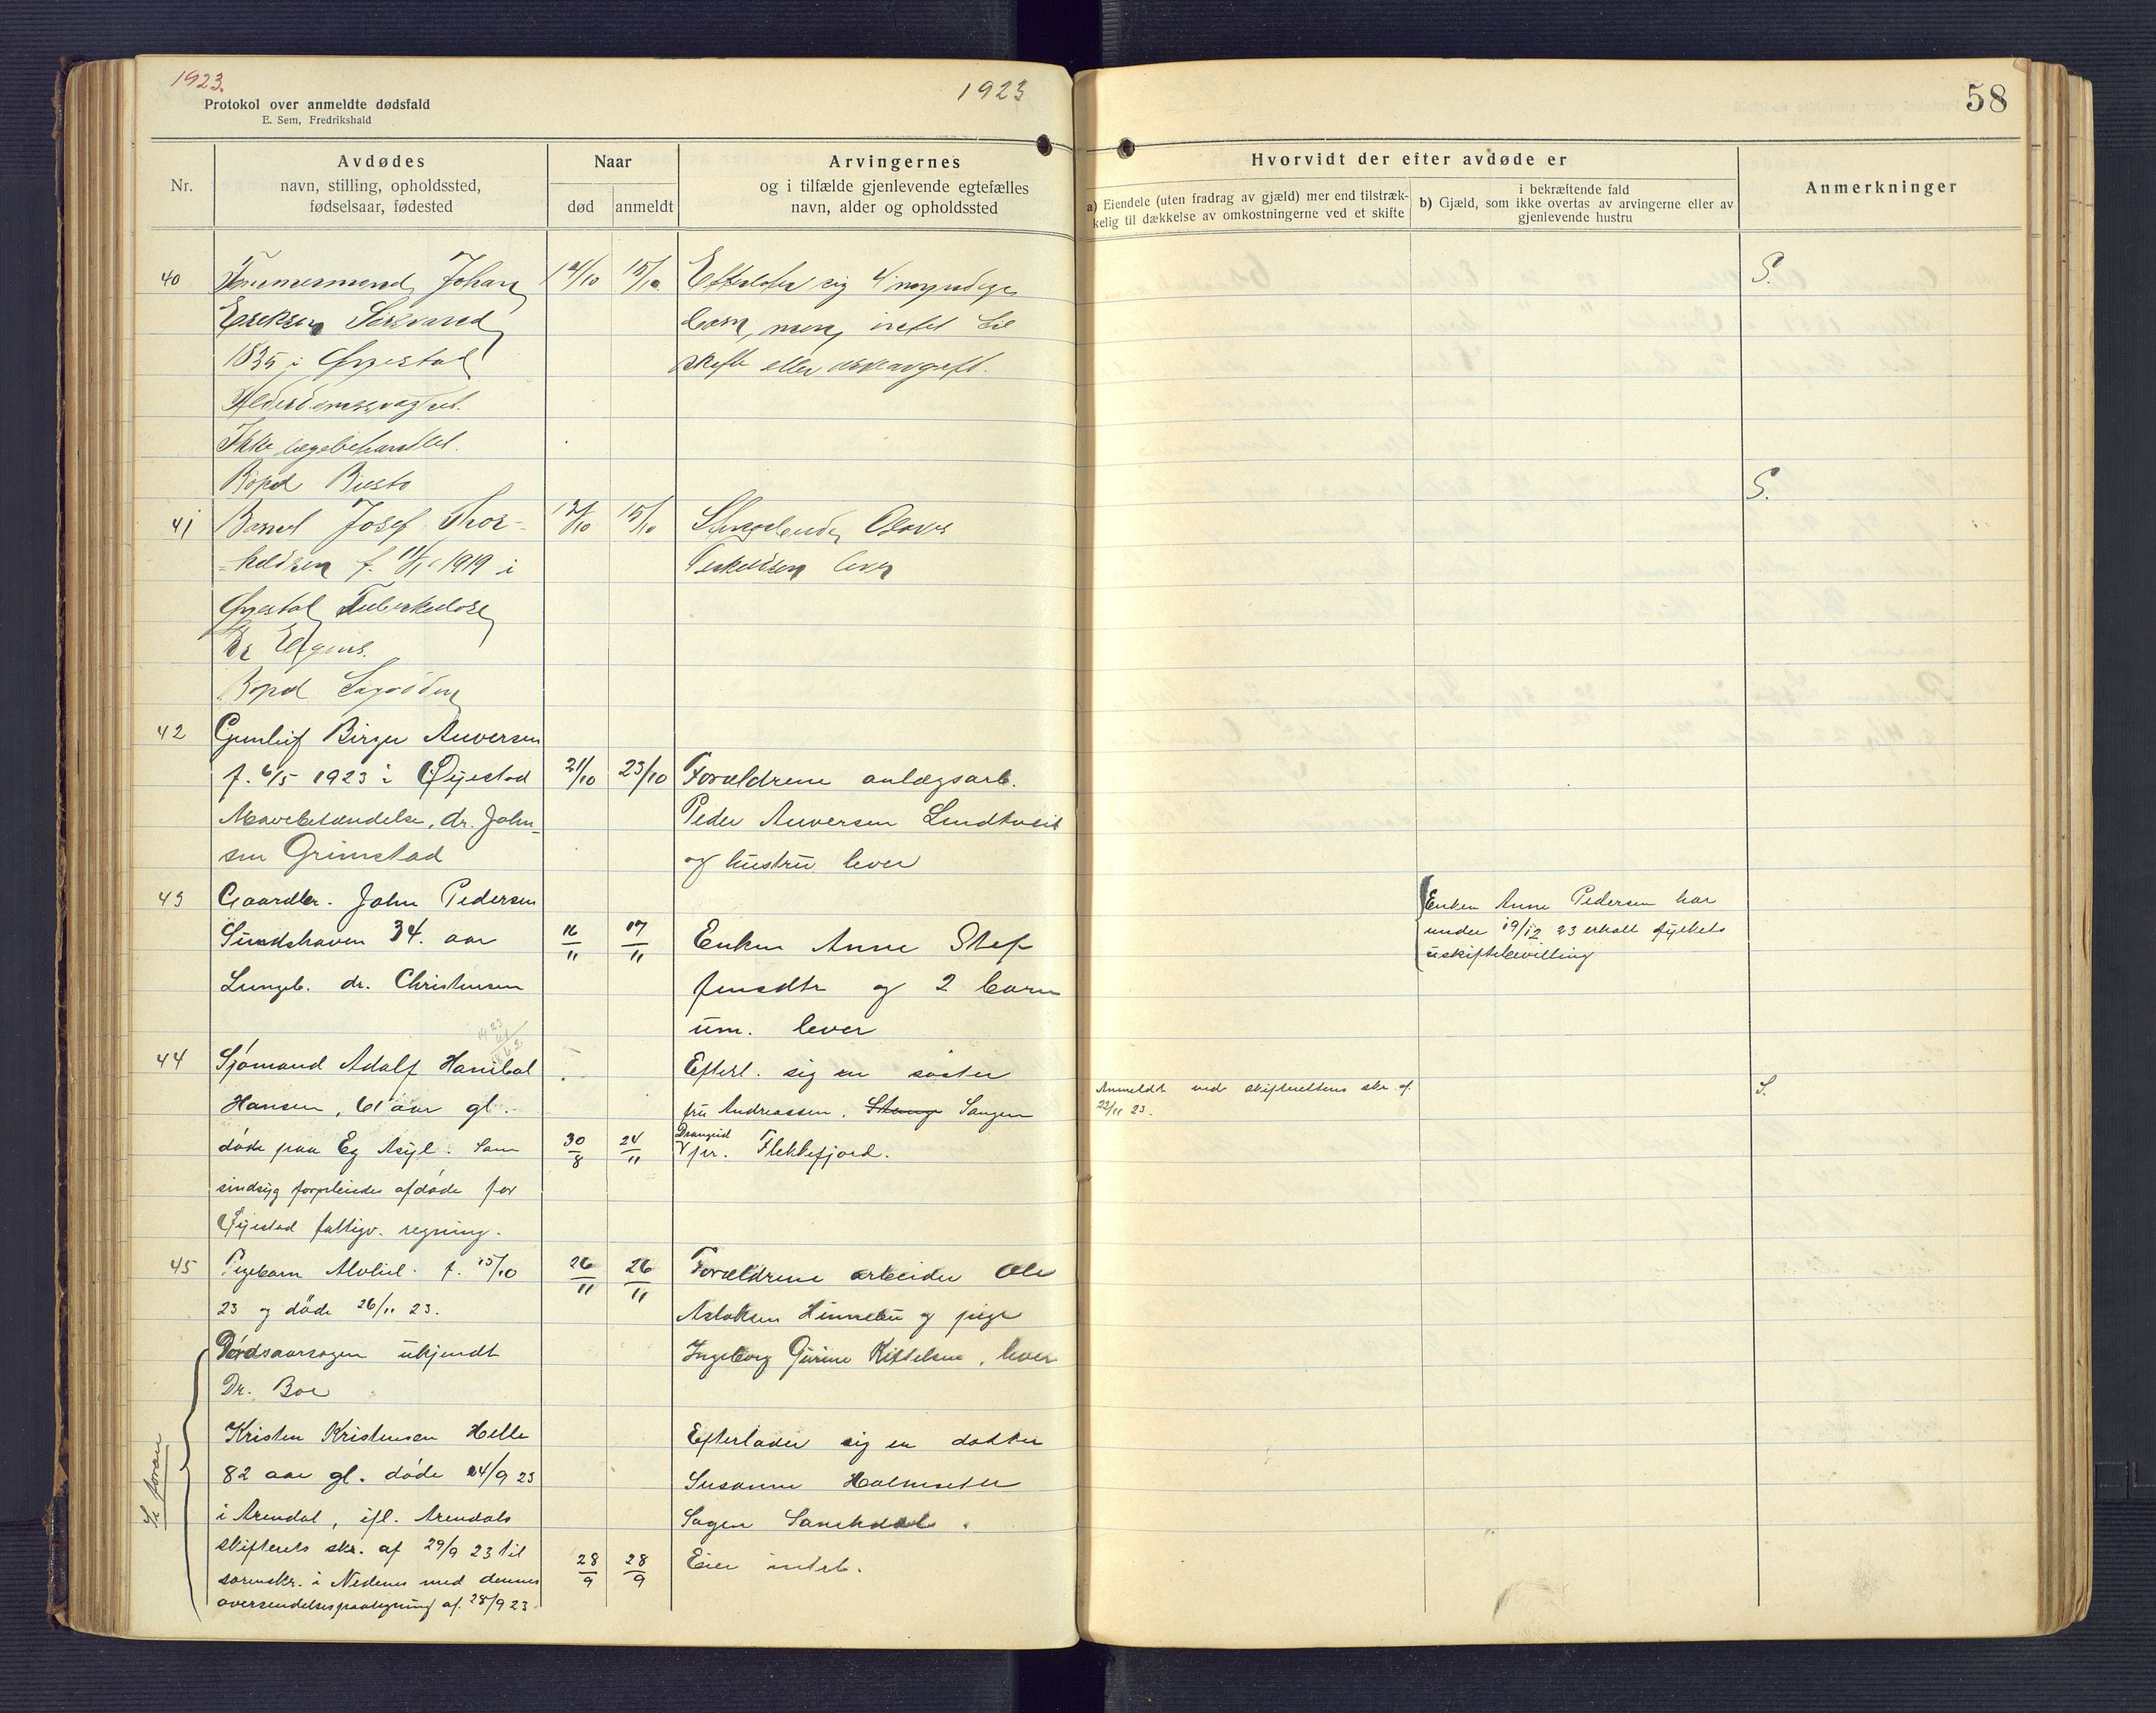 1923.
1923
58
Protokol over anmeldte dødsfald
E. Sem, Fredrikshald
Nr.
Avdødes
navn, stilling, opholdssted,
fødselsaar, fødested
Naar
død
anmeldt
Arvingernes
og i tilfælde gjenlevende egtefælles
navn, alder og opholdssted
Hvorvidt der efter avdøde er
a) Eiendele (uten fradrag av gjæld) mer end tilstræk-
kelig til dækkelse av omkostningerne ved et skifte
i bekræftende fald
b) Gjæld, som ikke overtas av arvingerne eller av
gjenlevende hustru
Anmerkninger
40
Tømmermand Johan
Eriksen
1835 i Øyestad
Alderdomssvaghet.
Ikke lægebehandlet.
Bopæl
15/10
Efterlater sig 4 myndige
barn, men intet til
skifte eller arveavgift.
S.
41
Barnet Josef Thor-
keldsen f. 1919 i
Øyestad Tuberkulose
Dr
Bopæl
15/10
Terkeldsen lever
S.
42
Gunleif Birger Auversen
f. 6/5 1923 i Øyestad
Mavebetændelse, dr. John-
sen Grimstad
21/10
23/10
Forældrene anlægsarb.
Peder Auversen Lindtveit
og hustru lever
43
Gaardbr. John Pedersen
34. aar
Lungeb. dr. Christensen
16/11
17/11
Enken Anne Stef
fensdtr og 2 barn
um. lever
Enken Anne Pedersen har
under 19/12 23 erholt fylkets
uskiftebevilling
44
Sjømand Adolf Hanibal
Hansen, 61 aar gl.
døde paa Eg Asyl. Som
sindsyg forpleiedes afdøde for
Øyestad fattigv. regning.
30/8
24/11
Efterl. sig en søster
fru Andreassen,
pr. Flekkefjord.
Anmeldt ved skifterettens skr. af
22/11 23.
S.
45
Pigebarn f. 15/10
23 og døde 26/11 23.
Dødsaarsagen ukjendt
Dr. Boe
26/11
26/11
Forældrene arbeider Ole
Aslaksen Hinnebu og pige
Ingeborg Gurine Kittelsen, lever
Se foran
Kristen Kristensen Helle
82 aar gl. døde 24/9 23
i Arendal, ifl. Arendals
skifterets skr. af 29/9 23 til
sorenskr. i Nedenes med dennes
oversendelsespaategning af 28/9 23
28/9
28/9
Efterlader sig en datter
Susanne Holmsæter
Eier intet.